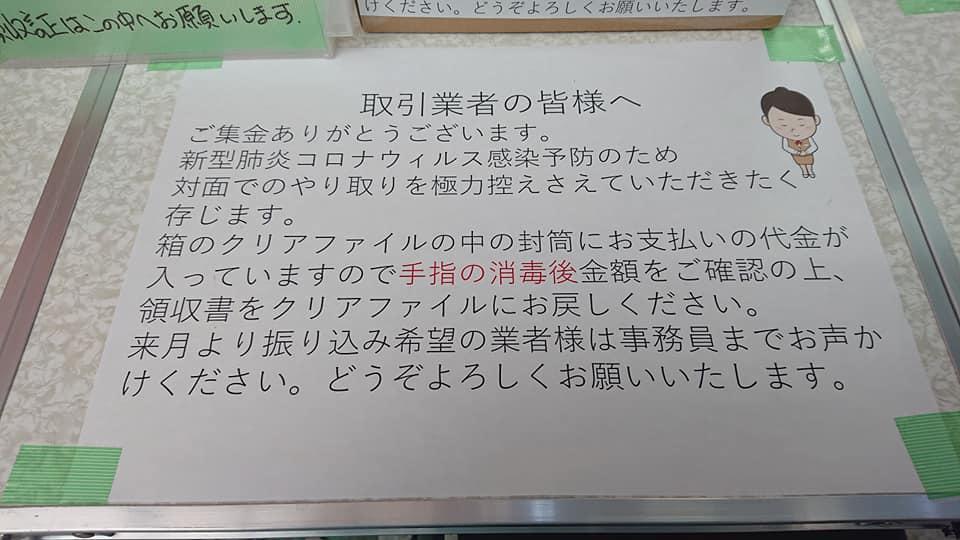 収証はこの中へお願いします.
けください。どうぞよろしくお願いいたします。
取引業者の皆様へ
ご集金ありがとうございます。
新型肺炎コロナウィルス感染予防のため
対面でのやり取りを極力控えさえていただきたく
存じます。
箱のクリアファイルの中の封筒にお支払いの代金が
入っていますので手指の消毒後金額をご確認の上、
領収書をクリアファイルにお戻しください。
来月より振り込み希望の業者様は事務員までお声か
けください。どうぞよろしくお願いいたします。